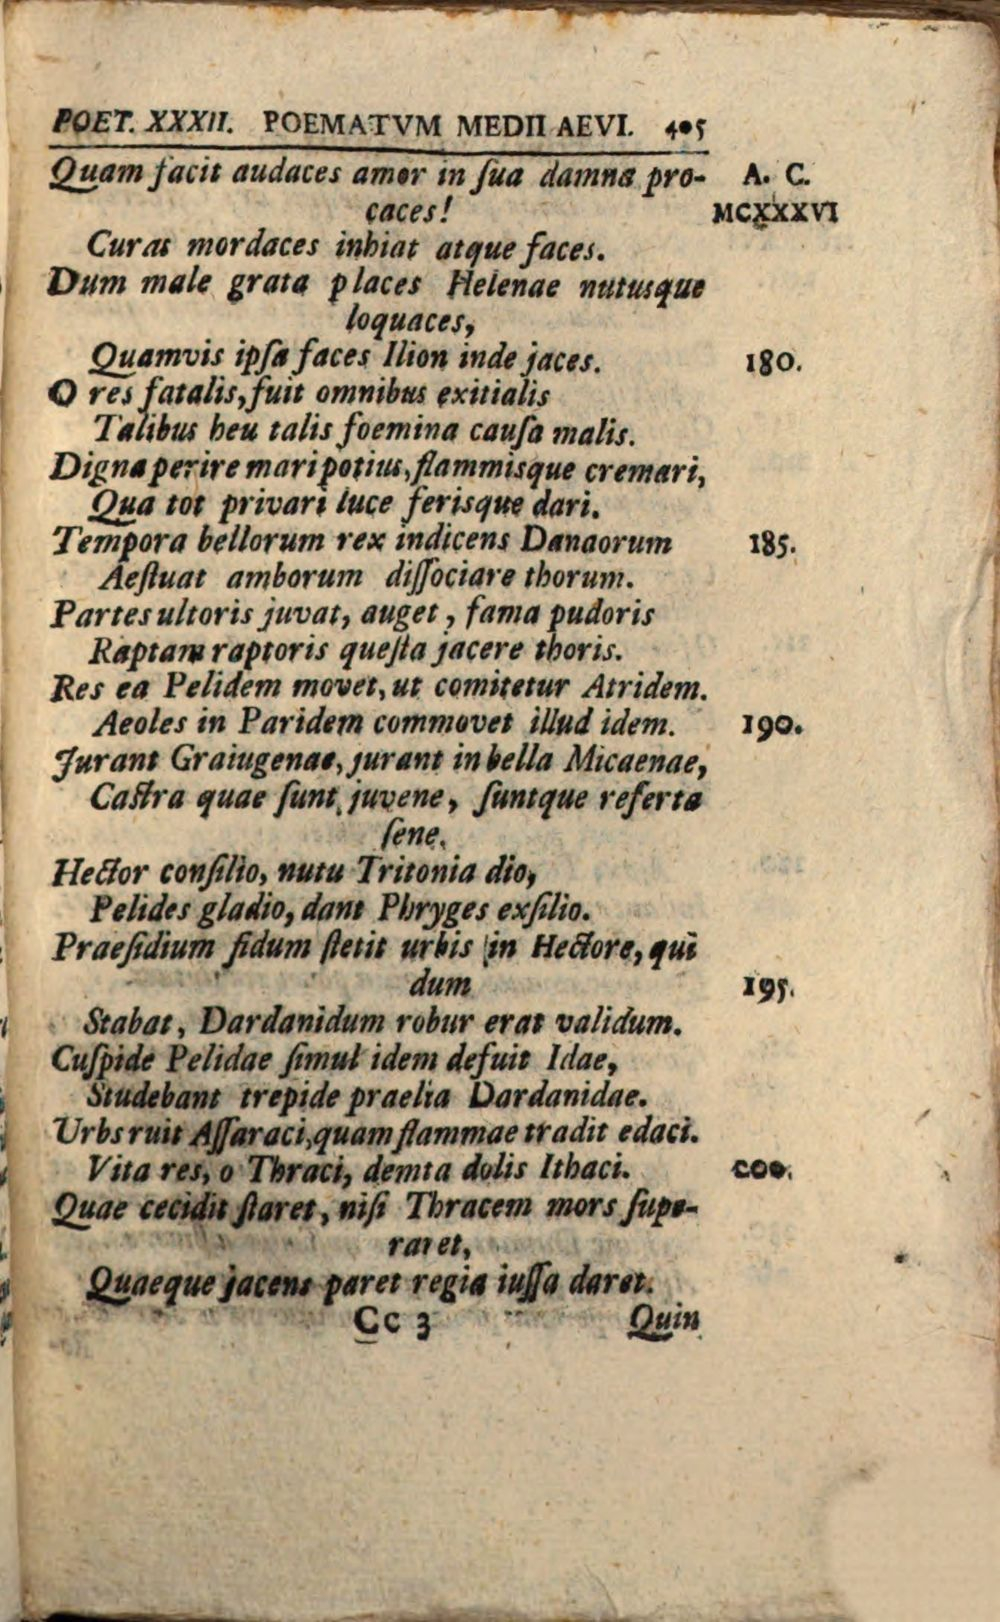 POET. XXXII. POEMATVM MEDII AEVI. 405
Quam facit audaces amor in ſua damna pro-
A. C.
caces!
MCXXXVI
Curas mordaces inhiat atque faces.
Dum male grata places Helenae nutusque
loquaces,
Quamvis ipſa faces Ilion inde jaces. 180.
O res fatalis, fuit omnibus exitialis
Talibus heu talis foemina cauſa malis.
Digna perire mari potius, flammisque cremari,
Qua tot privari luce ferisque dari.
Tempora bellorum rex indicens Danaorum 185.
Aeſtuat amborum diſſociare thorum.
Partes ultoris juvat, auget, fama pudoris
Raptam raptoris queſta jacere thoris.
Res ea Pelidem movet, ut comitetur Atridem.
Aeoles in Paridem commovet illud idem. 190.
Jurant Graiugenae, jurant in bella Micaenae,
Caſtra quae ſunt juvene, ſuntque referta
ſene.
Hector conſilio, nutu Tritonia dio,
Pelides gladio, dant Phryges exſilio.
Praeſidium fidum ſtetit urbis in Hectore, qui
dum 195.
Stabat, Dardanidum robur erat validum.
Cuſpide Pelidae ſimul idem defuit Idae,
Studebant trepide praelia Dardanidae.
Urbs ruit Aſſaraci, quam flammae tradit edaci.
Vita res, o Thraci, demta dolis Ithaci. coo.
Quae cecidit ſtaret, niſi Thracem mors ſupe-
raret,
Quaeque jacens paret regia iuſſa daret.
Cc 3 Quin